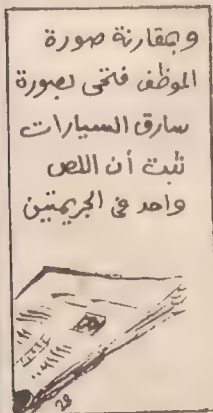 وبمقارنة صورة
الموظف فتحى بصورة
سارق السيارات
ثبت أن اللص
واحد فى الجريمتين